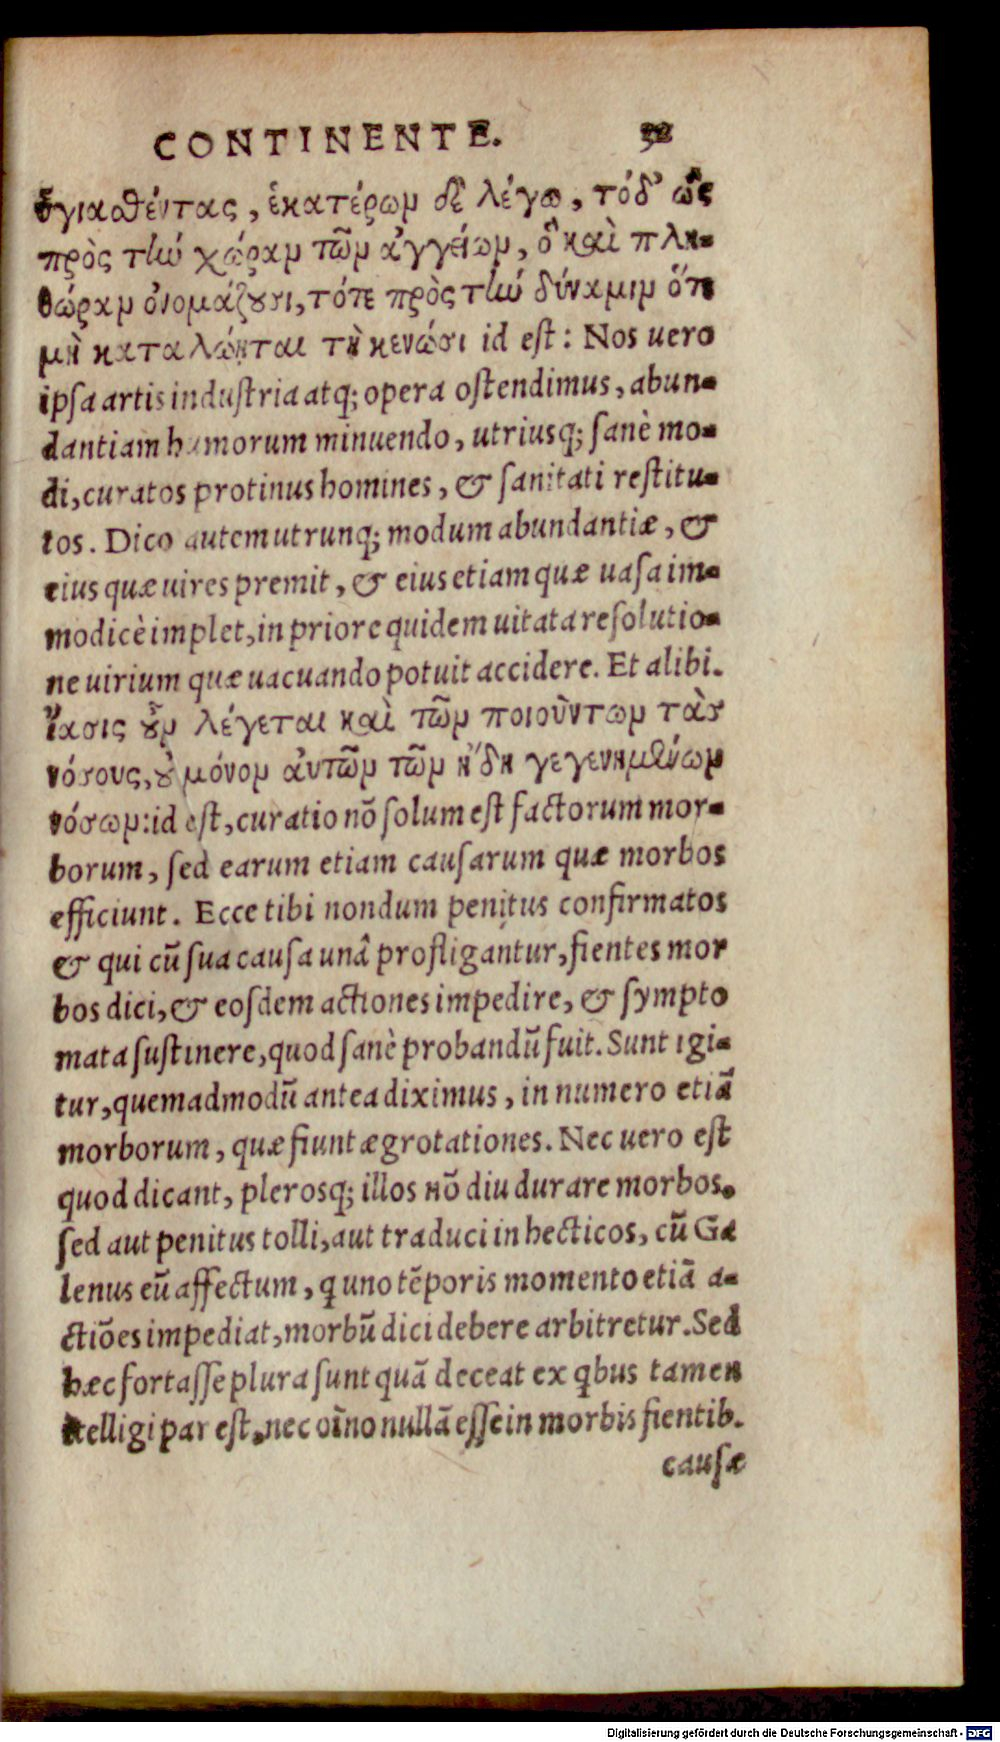 CONTINENTE. 52
ὑγιασθέντας, ἑκατέρωμ δὲ λέγω, τόδ' ὡς
πρὸς τὼ χώραμ τῶμ ἀγγείωμ, ὃ καὶ πλη-
θώραμ ὀνομάζουσι, τότε πρὸς τὼ δύναμιμ ὅτε
μὴ καταλώηται τῇ κενώσι id est: Nos uero
ipsa artis industria atq; opera ostendimus, abun-
dantiam humorum minuendo, utriusq; sanè mo-
di, curatos protinus homines, & sanitati restitu-
tos. Dico autem utrunq; modum abundantiæ, &
eius quæ uires premit, & eius etiam quæ uasa im-
modicè implet, in priore quidem uitata resolutio-
ne uirium quæ uacuando potuit accidere. Et alibi.
ἴασις οὖμ λέγεται καὶ τῶμ ποιοὺντωμ τὰσ
νόσους, οὐ μόνομ αὐτῶμ τῶμ ἤδη γεγενημένωμ
νόσωμ: id est, curatio nõ solum est factorum mor-
borum, sed earum etiam causarum quæ morbos
efficiunt. Ecce tibi nondum penitus confirmatos
& qui cũ sua causa unâ profligantur, fientes mor
bos dici, & eosdem actiones impedire, & sympto
mata sustinere, quod sanè probandũ fuit. Sunt igi-
tur, quemadmodũ antea diximus, in numero etiã
morborum, quæ fiunt ægrotationes. Nec uero est
quod dicant, plerosq; illos nõ diu durare morbos.
sed aut penitus tolli, aut traduci in hecticos, cũ Ga
lenus eũ affectum, q uno tẽporis momento etiã a-
ctiões impediat, morbũ dici debere arbitretur. Sed
hæc fortasse plura sunt quã deceat ex qbus tamen
telligi par est, nec oĩno nullã esse in morbis fientib.
causæ
Digitalisierung gefördert durch die Deutsche Forschungsgemeinschaft - DFG